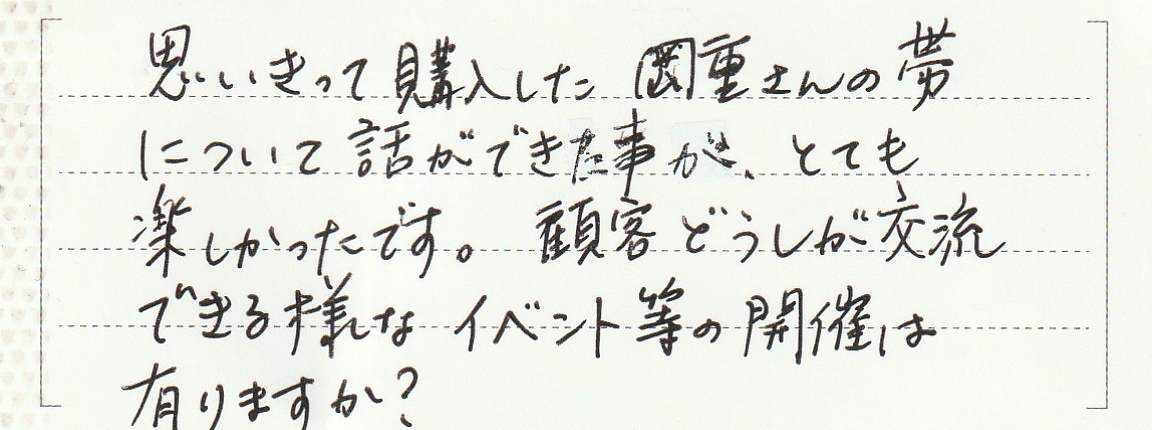 思いきって購入した 岡重さんの帯
について話ができた事が、とても
楽しかったです。顧客どうしが交流
できる様な イベント等の開催は
有りますか?